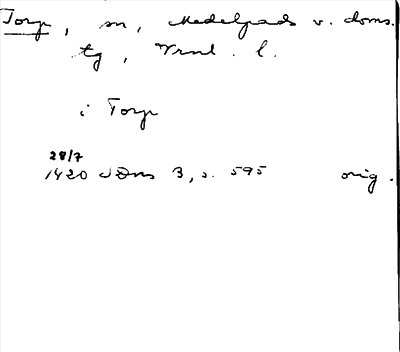 Torp, sn, Medelpads v. doms.
tg, Vrnl. l.
i Torp
28/7
1420 SDns 3, s. 595 orig.